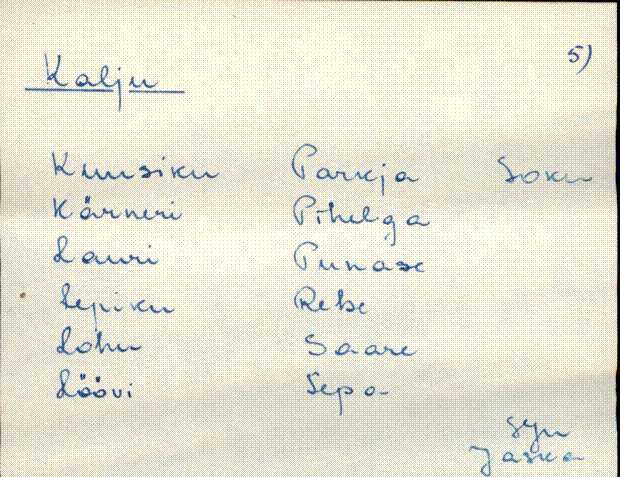 5)
Kalju
Kuusiku Parkja Soku
Kärneri Pihelga
Lauri Punase
Lepiku Rebe
Lohu Saare
Löövi Sepa
Jaska